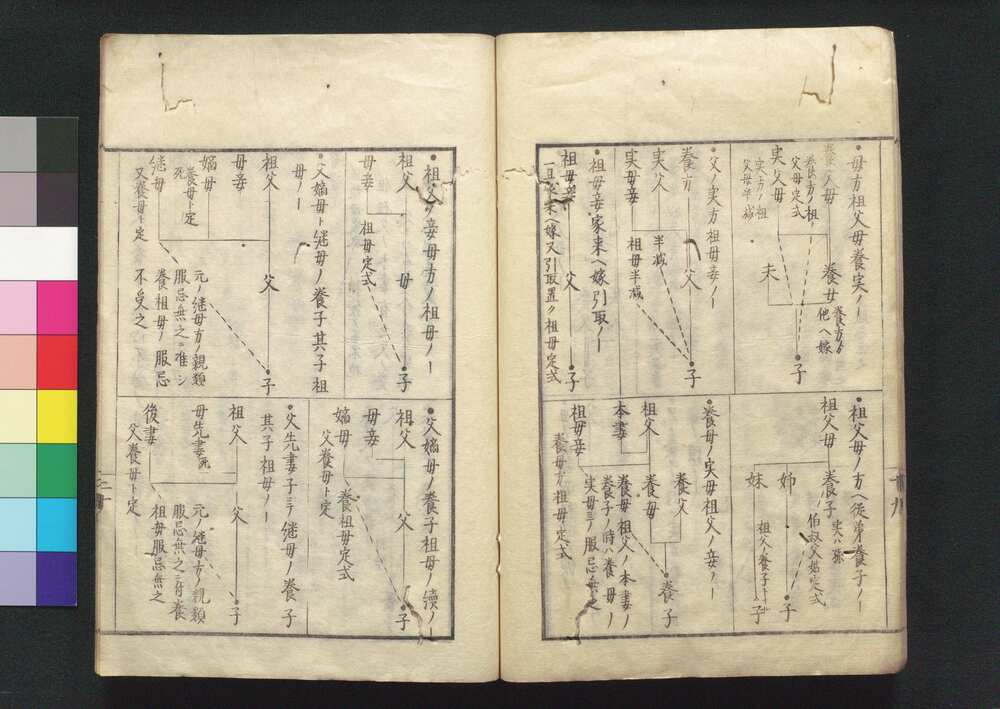 ●母方祖父母養実ノー
養父母
養方ノ祖
父母定式
実父母
実方ノ祖
父母半減
養女
養方ゟ
他へ嫁
夫
子
●父ノ実方祖母妾ノー
養方
実父
実母妾
父
半減
祖母半減
子
●祖母妾家来へ嫁引取ノー
祖母妾
一旦家来へ嫁又引取置ク祖母定式
父
子
●祖父母ノ方へ従弟養子ノー
祖父母
養子
実ハ孫
伯叔父姑定式
姉
妹
祖父ノ養子
子
子
●養母ノ実母祖父ノ妾ノー
養父
祖父
本妻
祖母妾
養母
養子
養母祖父ノ本妻ノ
養子ノ時ハ養母ノ
実母ヨリノ服忌無之
養母方祖母定式
十九
●祖父ノ妾母方ノ祖母ノー
祖父
母妾
祖母定式
母
子
●父嫡母ト継母ノ養子其子祖
母ノー
祖父
母妾
嫡母
死
養母ト定
継母
又養母ト定
父
子
元ノ継母方ノ親類
服忌無之ニ准シ
養祖母ノ服忌
不受之
●父嫡母ノ養子祖母ノ続ノー
祖父
母妾
嫡母
父養母ト定
父
養祖母定式
子
●父先妻子ニテ継母ノ養子
其子祖母ノー
祖父
母先妻死
後妻
父養母ト定
父
子
元ノ継母方ノ親類
服忌無之ニ付養
祖母服忌無之
二十